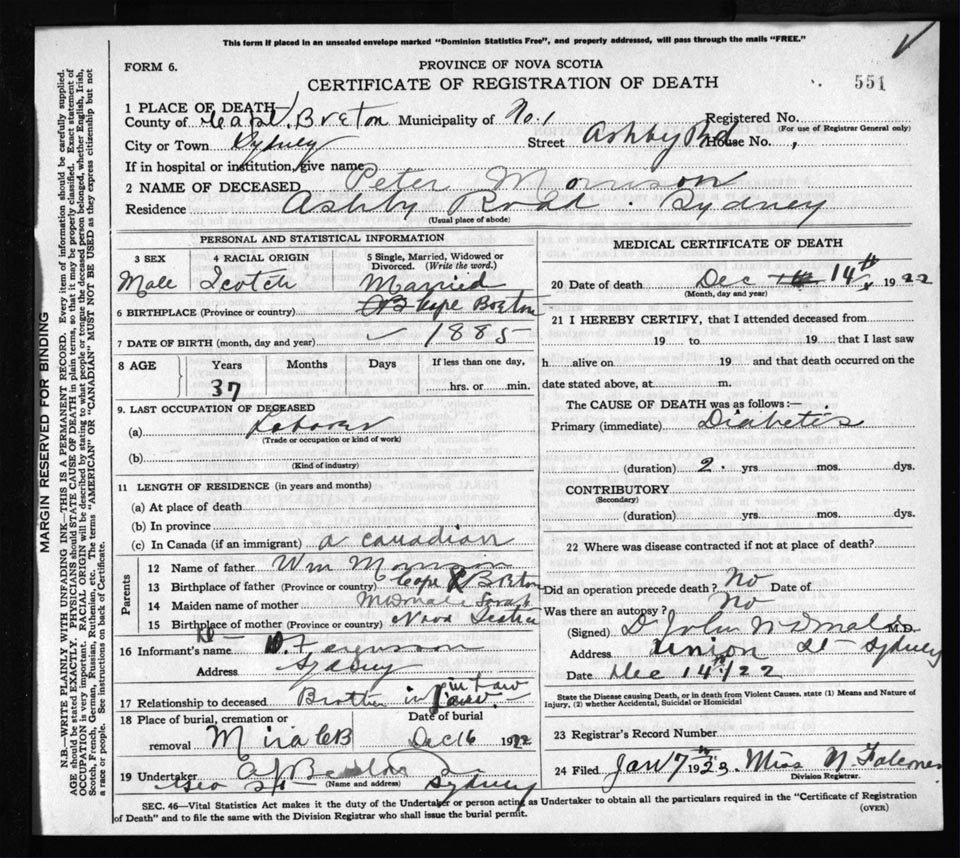 This form if placed in an unsealed envelope marked "Dominion Statistics Free", and properly addressed, will pass through the mails "FREE."
FORM 6.
PROVINCE OF NOVA SCOTIA
CERTIFICATE OF REGISTRATION OF DEATH
551
1 PLACE OF DEATH
County of Cape Breton Municipality of No. 1 Registered No.
(For use of Registrar General only)
City or Town Sydney Street Ashby Rd House No.
If in hospital or institution, give name
2 NAME OF DECEASED Peter Morrison
Residence Ashby Road. Sydney
(Usual place of abode)
PERSONAL AND STATISTICAL INFORMATION
3 SEX 4 RACIAL ORIGIN 5 Single, Married, Widowed or Divorced. (Write the word.)
Male Scotch Married
6 BIRTHPLACE (Province or country) Cape Breton
7 DATE OF BIRTH (month, day and year) 1885
8 AGE Years Months Days If less than one day,
37 hrs. or min.
9. LAST OCCUPATION OF DECEASED
(a) Laborer
(Trade or occupation or kind of work)
(b)
(Kind of industry)
11 LENGTH OF RESIDENCE (in years and months)
(a) At place of death
(b) In province
(c) In Canada (if an immigrant) a canadian
Parents
12 Name of father Wm Morrison
13 Birthplace of father (Province or country) Cape Breton
14 Maiden name of mother Sarah
15 Birthplace of mother (Province or country) Nova Scotia
16 Informant's name D. Ferguson
Address Sydney
17 Relationship to deceased Brother in law
18 Place of burial, cremation or removal Mira CB Date of burial Dec 16 1922
19 Undertaker
(Name and address) Sydney
MEDICAL CERTIFICATE OF DEATH
20 Date of death Dec 14th 1922
(Month, day and year)
21 I HEREBY CERTIFY, that I attended deceased from
19 to 19 that I last saw
h alive on 19 and that death occurred on the
date stated above, at m.
The CAUSE OF DEATH was as follows:—
Primary (immediate) Diabetis
(duration) 2. yrs. mos. dys.
CONTRIBUTORY
(Secondary)
(duration) yrs. mos. dys.
22 Where was disease contracted if not at place of death?
Did an operation precede death? No Date of
Was there an autopsy? No
(Signed) D John McDonald M.D.
Address Union St - Sydney
Date Dec 14th/22
State the Disease causing Death, or in death from Violent Causes, state (1) Means and Nature of
Injury, (2) whether Accidental, Suicidal or Homicidal
23 Registrar's Record Number
24 Filed Jan 7th 1923. Miss N
Division Registrar.
SEC. 46—Vital Statistics Act makes it the duty of the Undertaker or person acting as Undertaker to obtain all the particulars required in the "Certificate of Registration
of Death" and to file the same with the Division Registrar who shall issue the burial permit.
(OVER)
MARGIN RESERVED FOR BINDING
N.B.—WRITE PLAINLY WITH UNFADING INK—THIS IS A PERMANENT RECORD. Every item of information should be carefully supplied.
AGE should be stated EXACTLY. PHYSICIANS should STATE CAUSE OF DEATH in plain terms, so that it may be properly classified. Exact statement of
OCCUPATION is very important. RACIAL ORIGIN will be described by stating to what people or tongue the deceased person belonged, whether English, Irish,
Scotch, French, German, Russian, Ruthenian, etc. The terms "AMERICAN" OR "CANADIAN" MUST NOT BE USED as they express citizenship but not
a race or people. See instructions on back of Certificate.